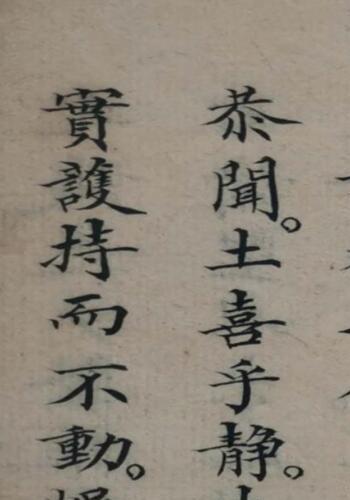 恭聞。土喜乎静。
實護持而不動。